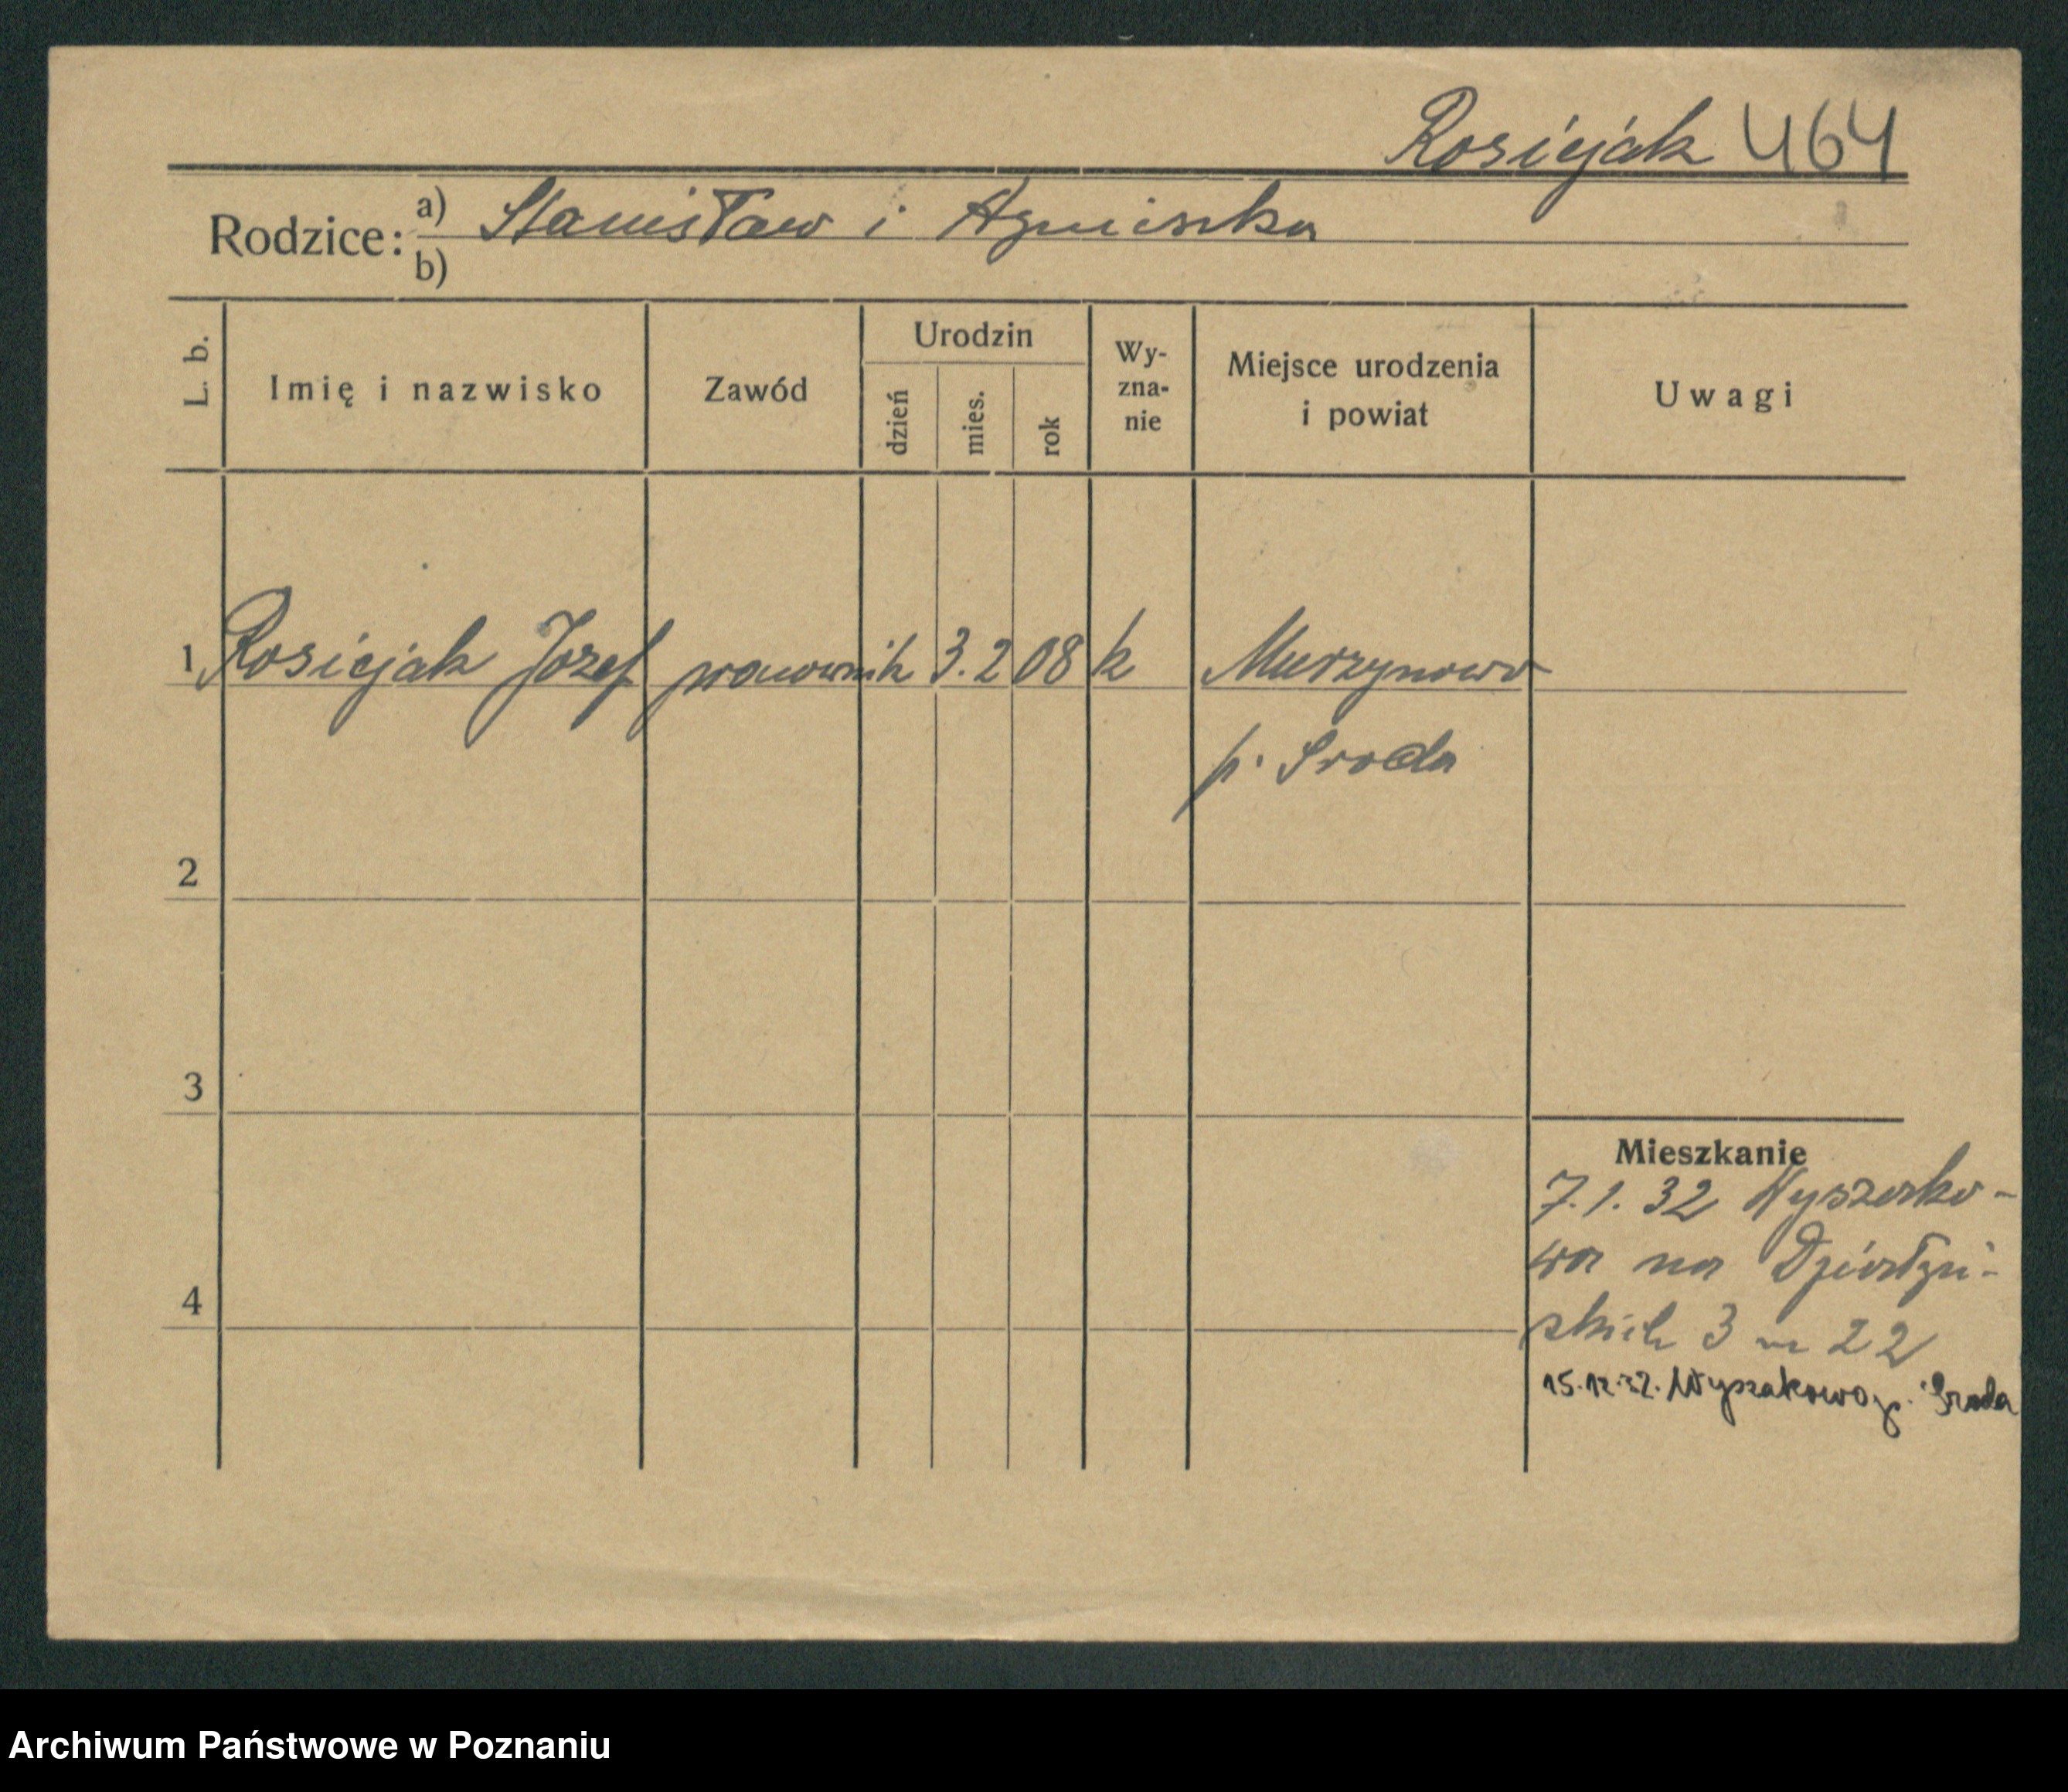 Rosiejak 464
Rodzice: a) Stanisław i Agnieszka
b)
L. b.
Imię i nazwisko
Zawód
Urodzin
dzień
mies.
rok
Wy-
zna-
nie
Miejsce urodzenia
i powiat
Uwagi
1 Rosiejak Józef pracownik 3. 2 08 k Murzynowo
p. Sroda
2
3
4
Mieszkanie
7.1.32 Wyszako-
wa na
3 m 22
15.12.32. Wyszakowo p. Sroda
Archiwum Państwowe w Poznaniu